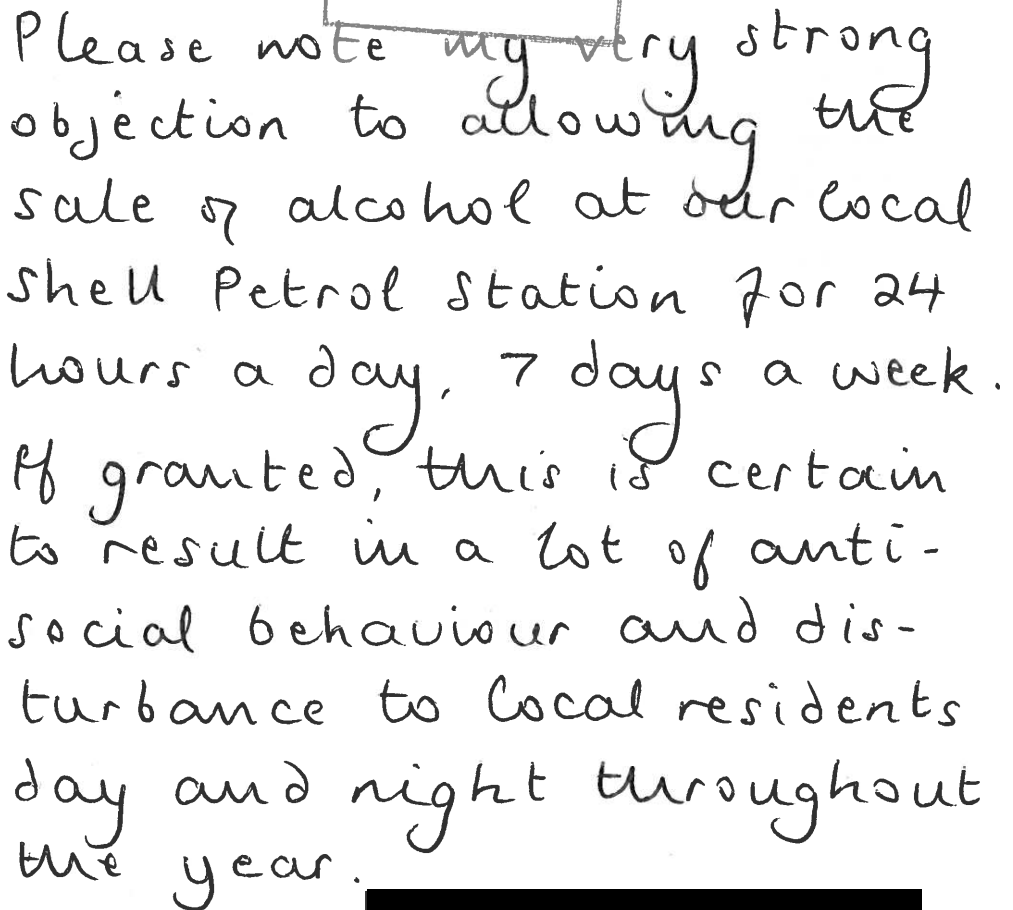 Please note my very strong
objection to allowing the
sale of alcohol at our local
Shell Petrol Station for 24
hours a day, 7 days a week.
If granted, this is certain
to result in a lot of anti-
social behaviour and dis-
turbance to local residents
day and night throughout
the year.